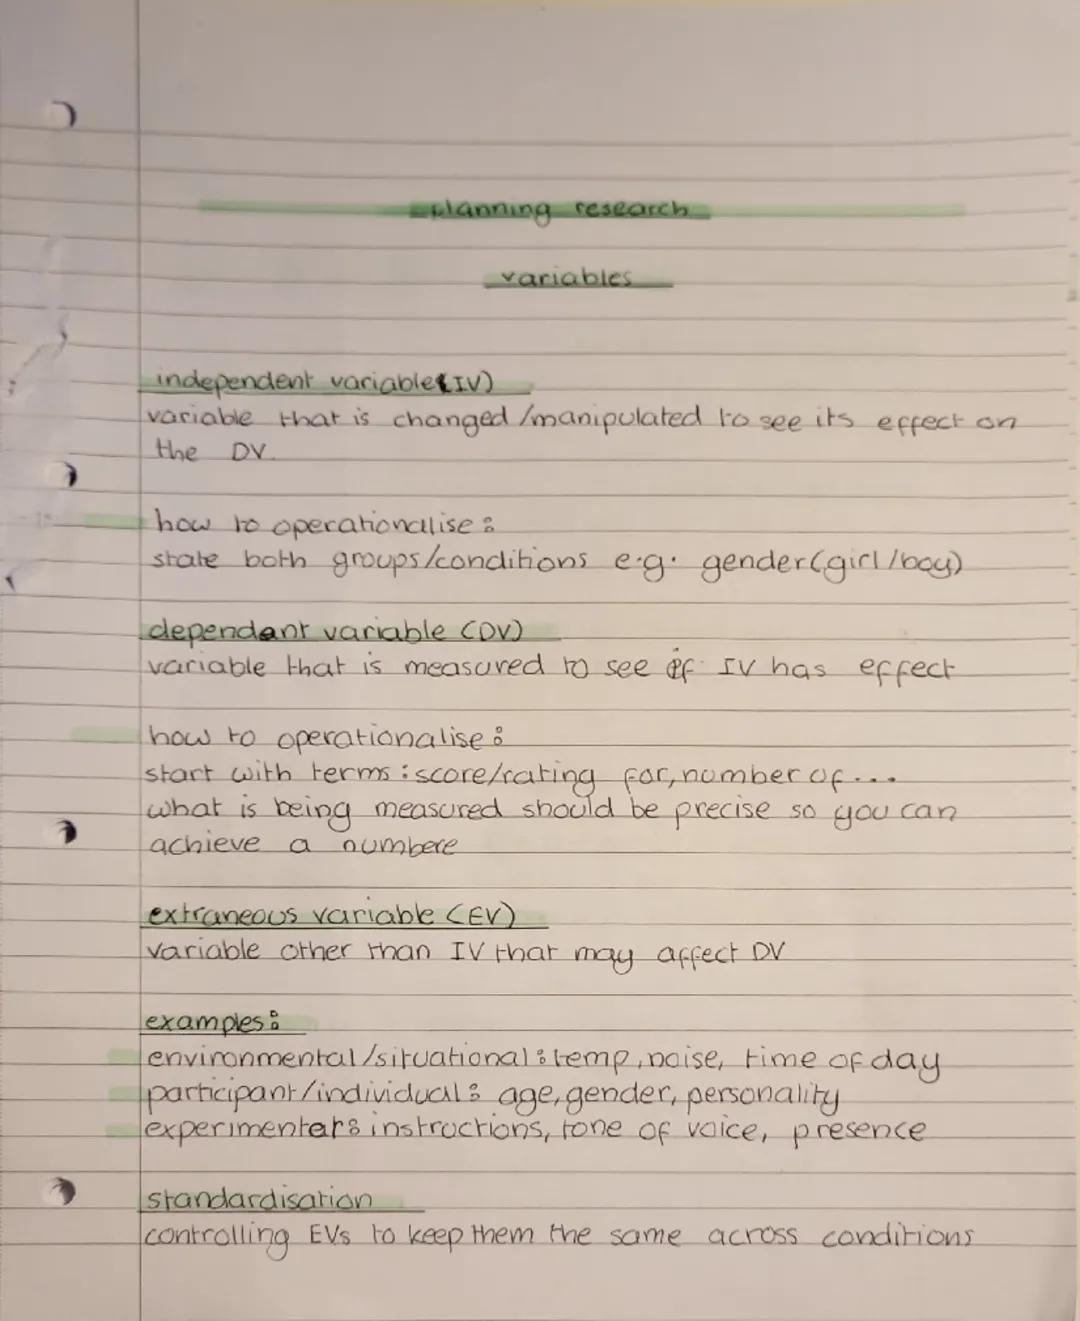 planning research
variables
independent variable(IV)
variable that is changed/manipulated to see its effect on
the DV.
how to operationalise:
state both groups/conditions e.g. gender(girl/boy)
dependent variable (DV)
variable that is measured to see if IV has effect
how to operationalise:
start with terms: score/rating for, number of...
what is being measured should be precise so you can
achieve a numbere
extraneous variable (EV)
variable other than IV that may affect DV
examples:
environmental/situational: temp, noise, time of day
participant/individual: age, gender, personality
experimenter: instructions, tone of voice, presence
standardisation
controlling EVs to keep them the same across conditions